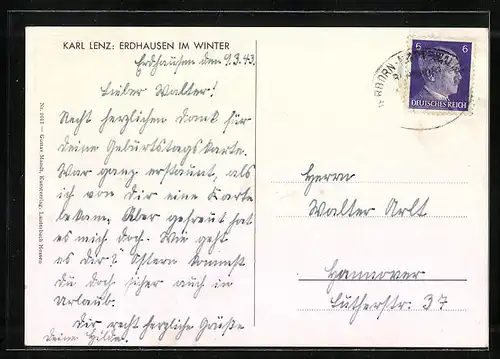 KARL LENZ: ERDHAUSEN IM WINTER
Erdhausen den 9.3.43.
Lieber Walter!
Recht herzlichen Dank für
deine Geburtstagskarte.
War ganz erstaunt, als
ich von Dir eine Karte
bekam. Aber gefreut hat
es mich doch. Wie geht
es dir? Ostern kommst
du doch sicher auch in
Urlaub.
Dir recht herzliche Grüße
deine Hilde.
6 6
DEUTSCHES REICH
Herrn
Walter Arlt
Hannover
Lutherstr. 37